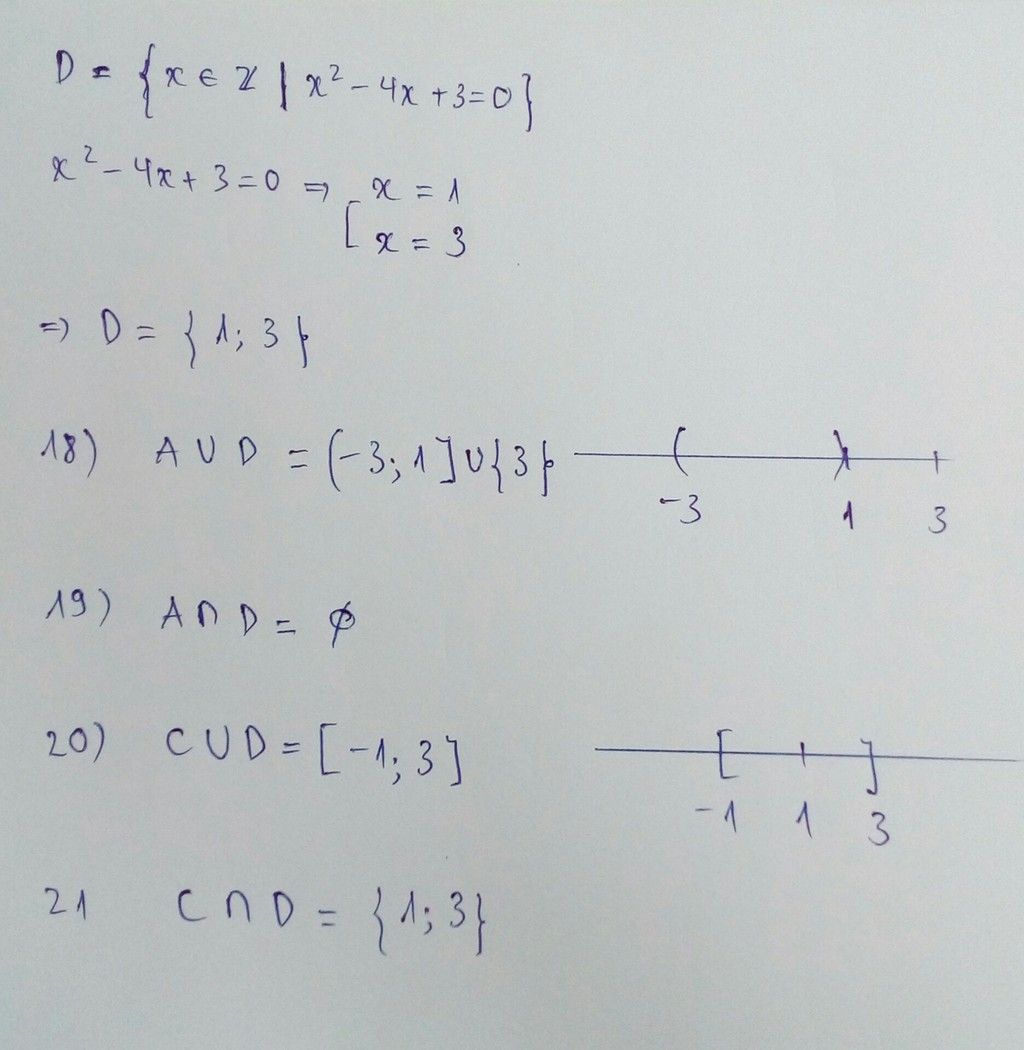 D = {x ∈ ℤ | x² - 4x + 3 = 0}
x² - 4x + 3 = 0 ⇒ [ x = 1
x = 3
⇒ D = {1; 3}
18) A ∪ D = (-3; 1] ∪ {3}
-3 1 3
19) A ∩ D = ∅
20) C ∪ D = [-1; 3]
-1 1 3
21 C ∩ D = {1; 3}